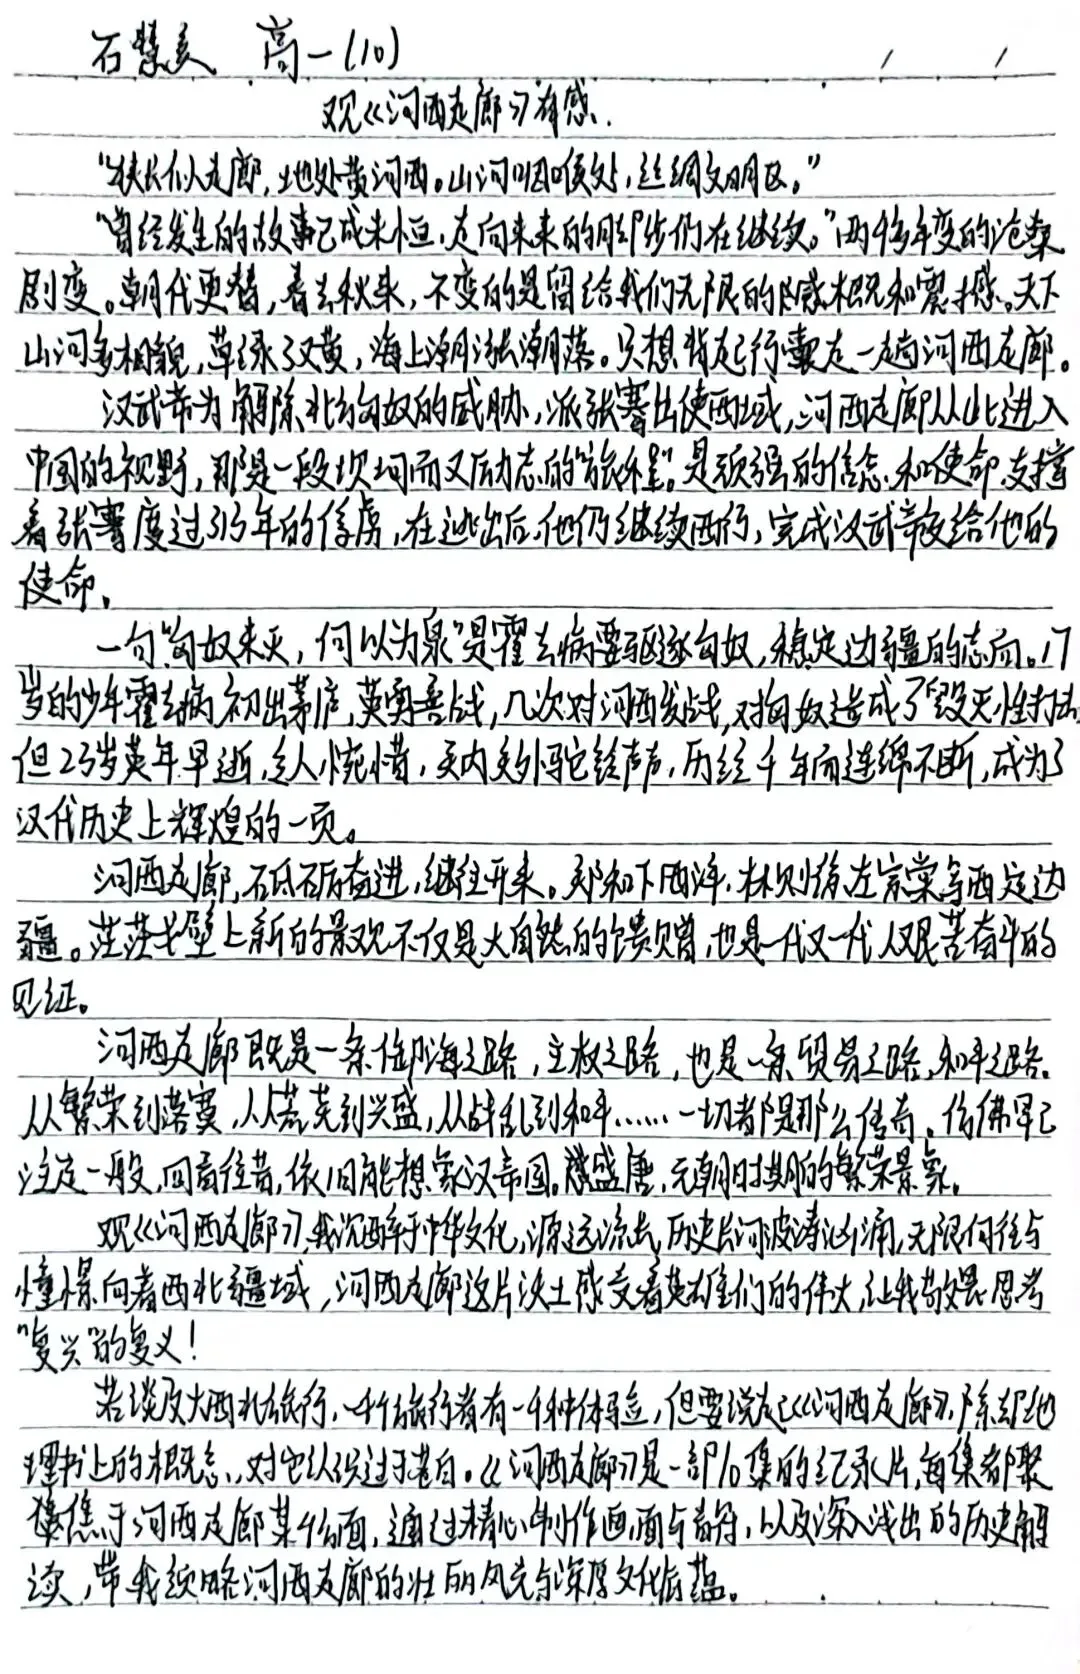 石慧美 高一(10)
观《河西走廊》有感.
"狭长似走廊,地处黄河西。山河咽喉处,丝绸文明区。"
"曾经发生的故事已成永恒,走向未来的脚步仍在继续。"两千多年变的沧桑
剧变。朝代更替,春去秋来,不变的是留给我们无限的感慨和震撼。天下
山河多相貌,草绿又黄,海上潮涨潮落。只想背起行囊走一趟河西走廊。
汉武帝为解除北匈奴的威胁,派张骞出使西域,河西走廊从此进入
中国的视野,那是一段坎坷而又励志的"旅程"。是顽强的信念和使命支撑
着张骞度过年的俘虏,在逃出后,他仍继续西行,完成汉武帝交给他的
使命。
一句"匈奴未灭,何以为家"是霍去病要驱逐匈奴,稳定边疆的志向。17
岁的少年霍去病初出茅庐,英勇善战,几次对河西发战,对匈奴造成了毁灭性打击,
但23岁英年早逝,令人惋惜,关内关外驼铃声声,历经千年而连绵不断,成为了
汉代历史上辉煌的一页。
河西走廊,砥砺奋进,继往开来。郑和下西洋,林则徐、左宗棠等西定边
疆。茫茫戈壁上新的景观不仅是大自然的馈赠,也是一代又一代人艰苦奋斗的
见证。
河西走廊既是一条御海之路,主权之路,也是一条贸易之路,和平之路。
从繁荣到落寞,从荒芜到兴盛,从战乱到和平……一切都是那么传奇。仿佛早已
注定一般,回首往昔,依旧能想象汉帝国,盛唐,元朝时期的繁荣景象。
观《河西走廊》,我沉醉于中华文化,源远流长,历史长河波涛汹涌,无限向往与
憧憬向着西北疆域,河西走廊这片沃土承载着英雄们的伟大,让我敬畏思考
"复兴"的复义!
若谈及大西北旅行,一千个旅行者有一千种体验,但要说起《河西走廊》,除却地
理书上的概念,对它认识过于苍白。《河西走廊》是一部10集的纪录片,每集都聚
焦于河西走廊某个面,通过精心制作画面与音符,以及深入浅出的历史解
读,带我领略河西走廊的壮丽风光与深厚文化底蕴。